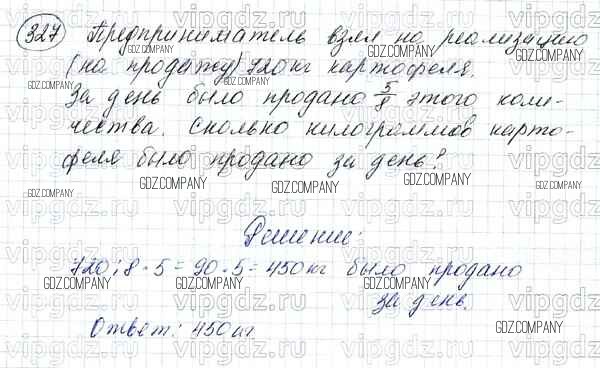 327 Предприниматель взял на реализацию
(на продажу) 720 кг картофеля.
За день было продано 5/8 этого коли-
чества. Сколько килограммов карто-
феля было продано за день?
Решение:
720 : 8 · 5 = 90 · 5 = 450 кг было продано
за день.
Ответ: 450 кг.
vipgdz.ru
GDZ.COMPANY